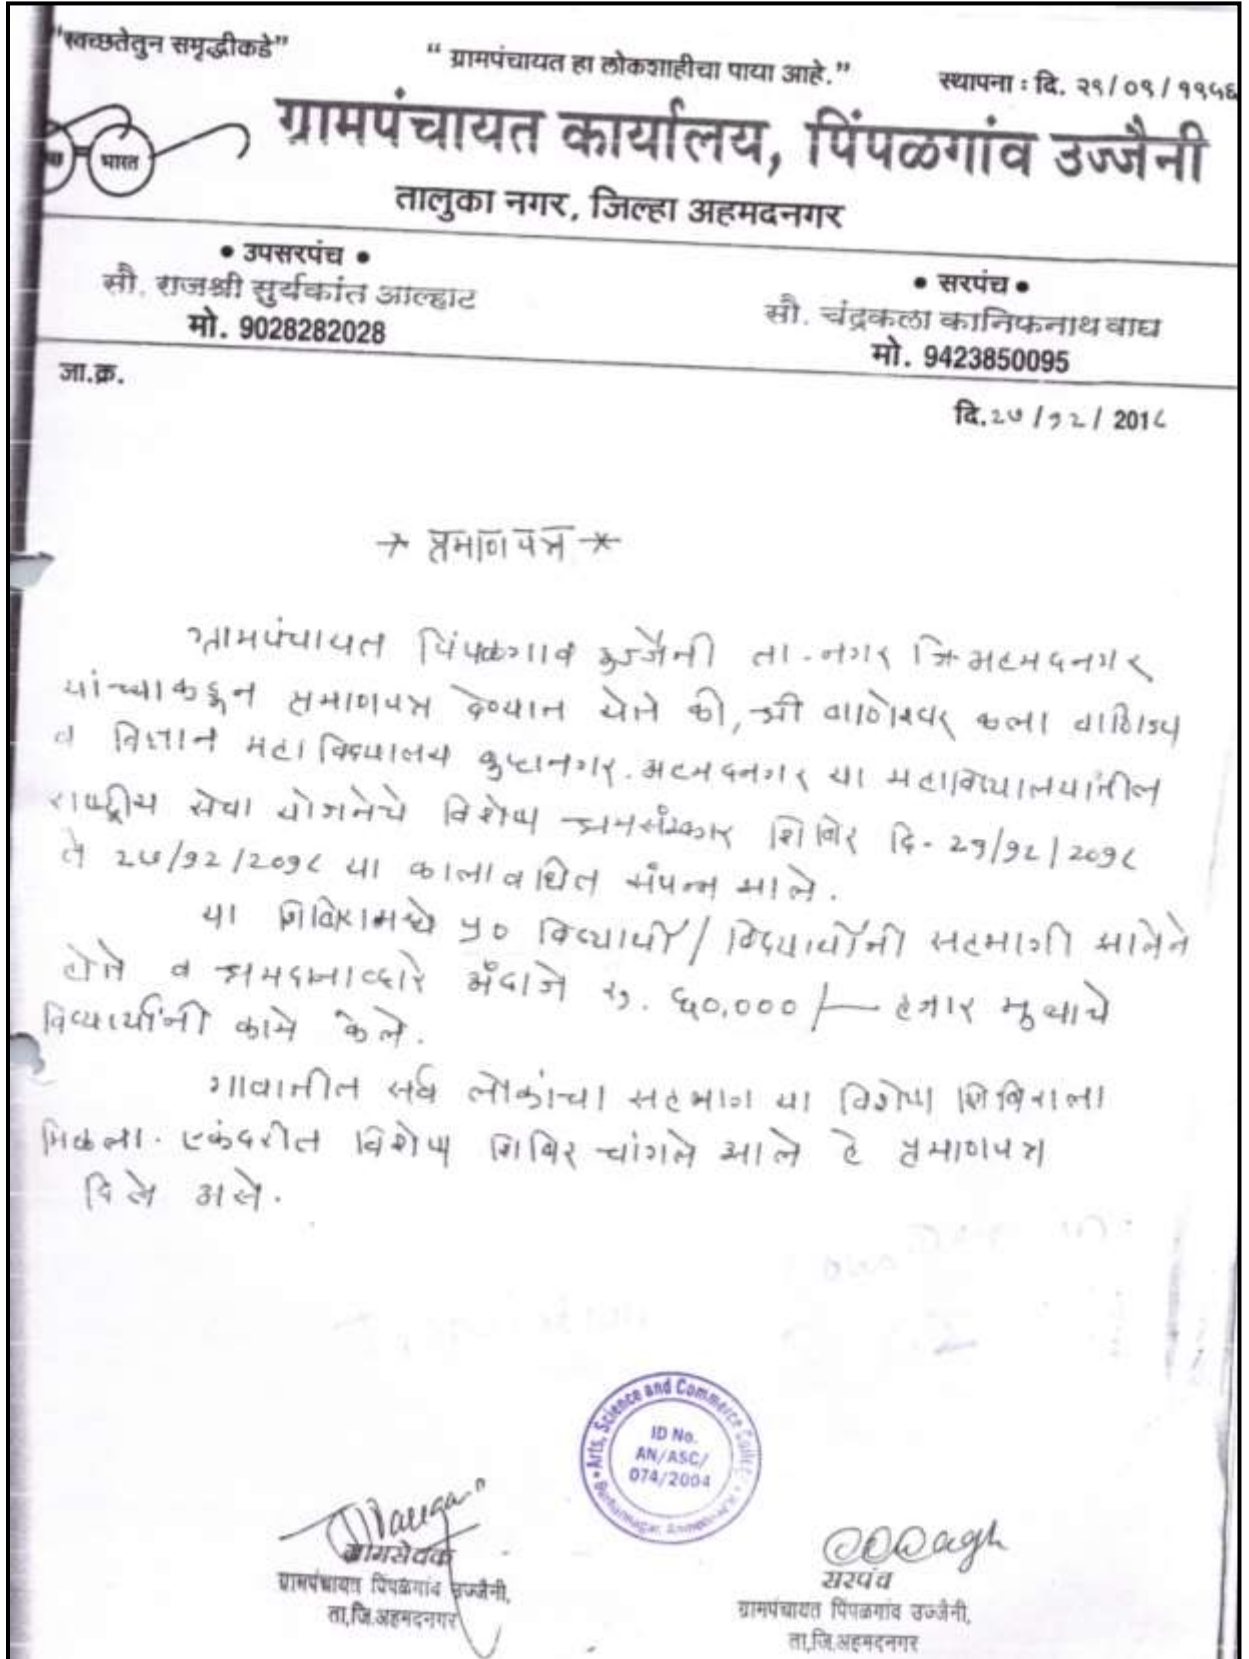 "स्वच्छतेतुन समृद्धीकडे"
" ग्रामपंचायत हा लोकशाहीचा पाया आहे."
स्थापना : दि. २९/०९/१९५६
भारत
ग्रामपंचायत कार्यालय, पिंपळगांव उज्जैनी
तालुका नगर, जिल्हा अहमदनगर
• उपसरपंच •
सौ. राजश्री सुर्यकांत आल्हाट
मो. 9028282028
• सरपंच •
सौ. चंद्रकला कानिफनाथ वाघ
मो. 9423850095
जा.क्र.
दि.२७/१२/201८
* प्रमाणपत्र *
ग्रामपंचायत पिंपळगाव उज्जैनी ता.नगर जि.अहमदनगर
यांच्याकडून प्रमाणपत्र देण्यात येते की, श्री बाणेश्वर कला वाणिज्य
व विज्ञान महाविद्यालय बुऱ्हानगर. अहमदनगर या महाविद्यालयांतील
राष्ट्रीय सेवा योजनेचे विशेष श्रमसंस्कार शिबिर दि- २१/१२/२०१८
ते २७/१२/२०१८ या कालावधित संपन्न झाले.
या शिबिरामध्ये ५० विद्यार्थी/विद्यार्थीनी सहभागी झालेले
होते व श्रमदानाव्दारे अंदाजे रु. ६०,०००/— हजार मुल्याचे
विद्यार्थ्यांनी कामे केले.
गावातील सर्व लोकांचा सहभाग या विशेष शिबिराला
मिळाला. एकंदरीत विशेष शिबिर चांगले झाले हे प्रमाणपत्र
दिले असे.
Arts, Science and Commerce College
ID No.
AN/ASC/
074/2004
Burhannagar,
ग्रामसेवक
ग्रामपंचायत पिंपळगांव उज्जैनी,
ता.जि.अहमदनगर
सरपंच
ग्रामपंचायत पिंपळगांव उज्जैनी,
ता.जि.अहमदनगर